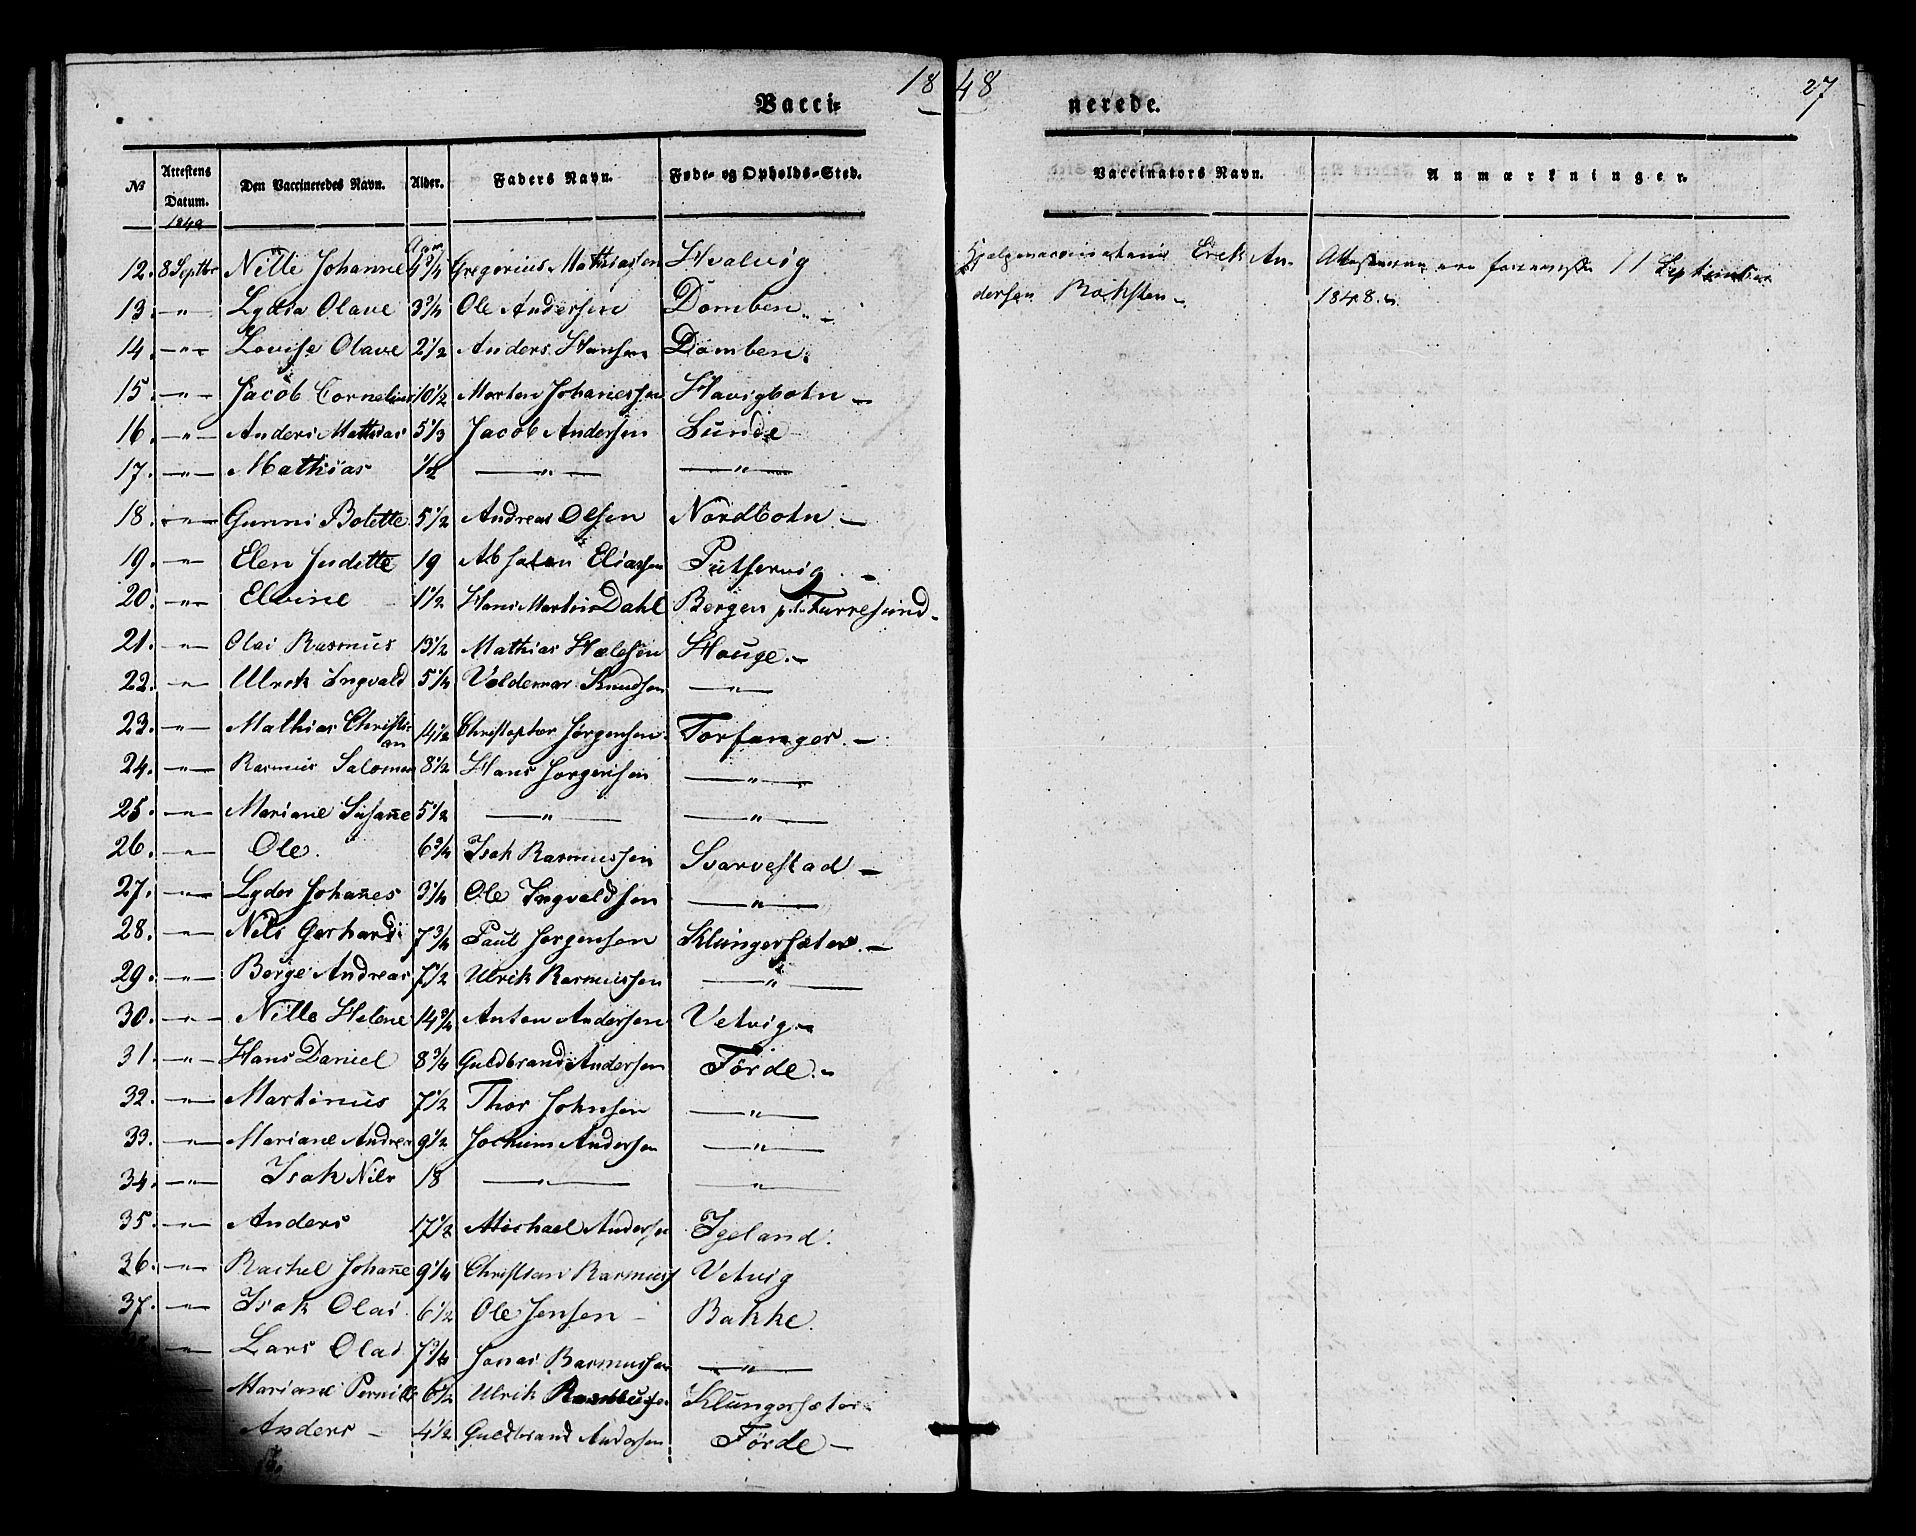 18 48
27
Vacci- nerede.
No Attestens Datum. Den Vaccineredes Navn. Alder. Faders Navn. Føde- og Opholds-Sted. Vaccinators Navn. Anmærkninger.
1848 Aar
12. 8 Septbr Nille Johanne 4 3/4 Gregorius Mathiassen Hvalvig Hjelpevaccinateur Erik An- Attesterne ere fremviste 11 September
13. -"- Lydia Olave 3 3/4 Ole Andersen Domben.- dersen Roksten.- 1848.
14. -"- Lovise Olave 2 1/2 Anders Hansen Domben.
15. -"- Jacob Cornelius 10 1/2 Morten Johanessen Havigbotn -
16. -"- Anders Mathias 5 1/3 Jacob Andersen Lunde
17. -"- Mathias 1/2 -"- -"-
18. -"- Gunni Bolette 5 1/2 Andreas Olsen Nordbotn -
19. -"- Elen Juditte 19 Absalon Eliassen Putservig -
20. -"- Elvine 1 1/2 Hans Martin Dahl Bergen p.t. Furresund -
21. -"- Olai Rasmus 13 1/2 Mathias Helesen Hauge. -
22. -" Ulrik Ingvald 5 1/4 Voldemar Knudsen -"-
23. -"- Mathias Christi- 14 1/2 Christopher Jørgensen Torfanger. -
an
24. -"- Rasmus Salomon 8 1/2 Hans Jørgensen -"-
25. -"- Mariane Susane 5 1/2 -"- -"-
26. -"- Ole. 6 3/4 Isak Rasmussen Svarvestad -
27. -"- Lyder Johanes 3 1/4 Ole Ingvaldsen -"-
28. -"- Nils Gerhard 7 3/4 Paul Jørgensen Klungersæter. -
29. -"- Berge Andreas 7 1/2 Ulrik Rasmussen -"-
30. -"- Nille Helene 14 3/4 Anton Andersen Vetvig -
31. -"- Hans Daniel 8 3/4 Guldbrand Andersen Førde. -
32. -"- Martinus 7 1/2 Thor Johnsen -"-
33. -"- Mariane Andrea 9 1/2 Jochum Andersen -"-
34. -"- Isak Nils 18 -"- -"-
35. -"- Anders 17 1/2 Michael Andersen Igeland.
36. -"- Rachel Johane 9 1/4 Christian Rasmuss Vetvig
37. -"- Isak Olai 6 1/2 Ole Jensen - Bakke.
-"- Lars Olai 7 3/4 Jonas Rasmussen -"-
Mariane Pernille 6 1/2 Ulrik Rasmussen Klungersæter
Anders - 4 1/2 Guldbrand Andersen Førde -